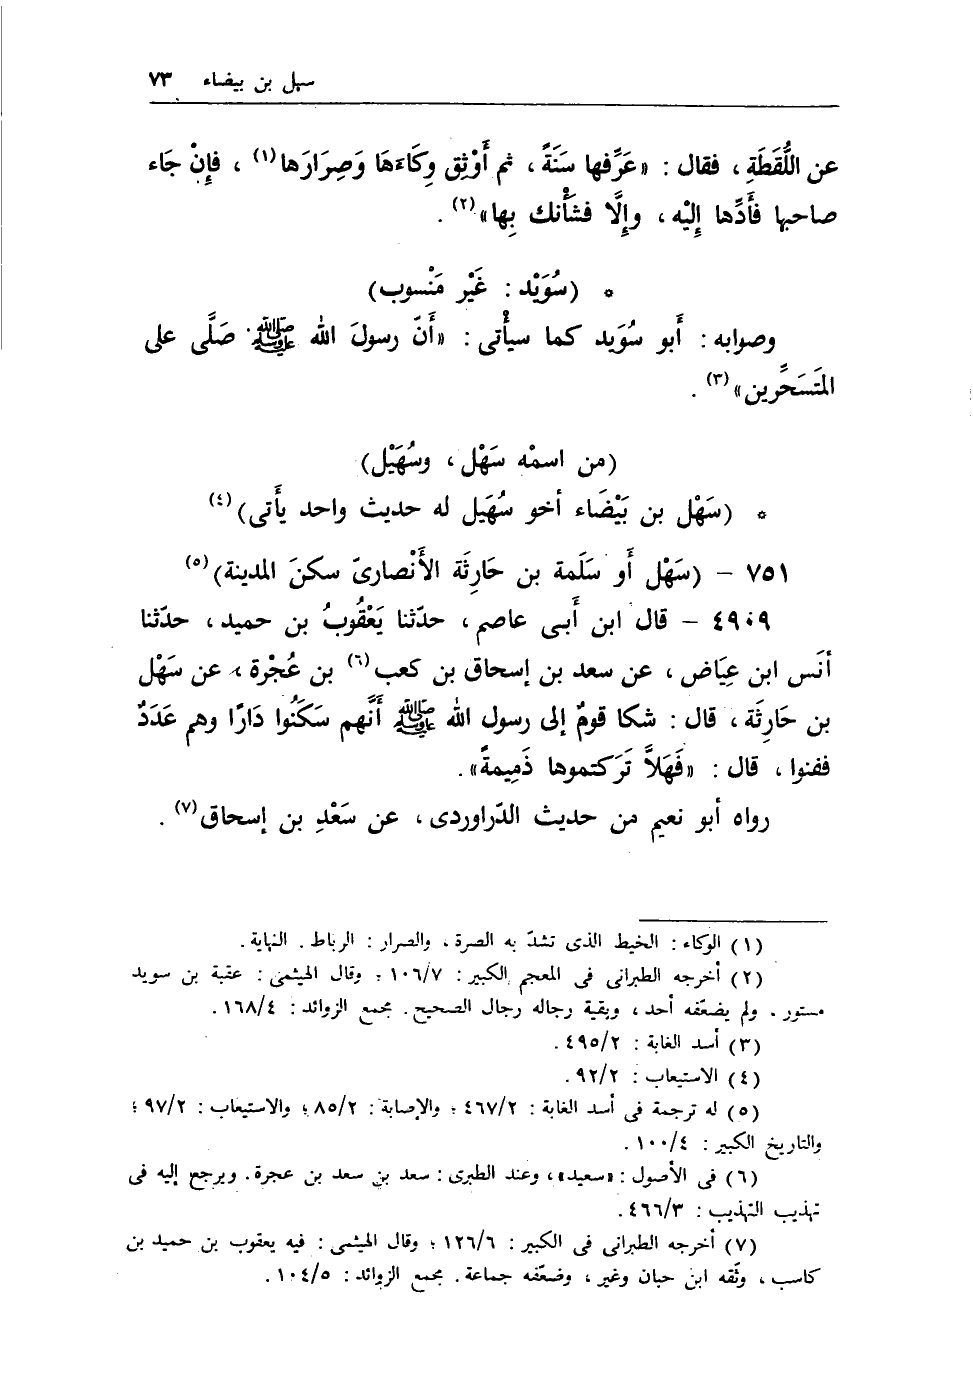 سهل بن بيضاء ٧٣
عن اللُّقَطَةِ ، فقال : «عَرِّفها سَنَةً ، ثم أَوْثِق وِكَاءَهَا وَصِرَارَها(١) ، فإِنْ جَاء
صاحبها فأَدِّها إِليْه ، وإِلَّا فشأْنك بِها»(٢) .
* (سُوَيْد : غَيْر مَنْسوب)
وصوابه : أَبو سُوَيد كما سيأْتى : «أَنّ رسولَ الله ﷺ صَلَّى على
المَتَسَحِّرين»(٣) .
(من اسمْه سَهْل ، وسُهَيْل)
* (سَهْل بن بَيْضَاء أخو سُهَيل له حديث واحد يأَتى)(٤)
٧٥١ – (سَهْل أَو سَلَمة بن حَارِثَة الأَنْصارىّ سكنَ المدينة)(٥)
٤٩٠٩ – قال ابن أَبى عاصم ، حدّثنا يَعْقُوبُ بن حميد ، حدّثنا
أنَس ابن عِيَاض ، عن سعد بن إسحاق بن كعب(٦) بن عُجْرة ، عن سَهْل
بن حَارِثَة ، قال : شكا قومٌ إلى رسول الله ﷺ أَنَّهم سَكَنُوا دَارًا وهم عَدَدٌ
ففنوا ، قال : «فَهَلاَّ تَرَكتموها ذَمِيمةً» .
رواه أبو نعيم من حديث الدّراوردى ، عن سَعْدِ بن إسحاق(٧) .
(١) الوكاء : الخيط الذى تشدّ به الصرة ، والصرار : الرباط . النهاية .
(٢) أخرجه الطبرانى فى المعجم الكبير : ١٠٦/٧ ؛ وقال الهيثمى : عقبة بن سويد
مستور . ولم يضعّفه أحد ، وبقية رجاله رجال الصحيح . مجمع الزوائد : ١٦٨/٤ .
(٣) أسد الغابة : ٤٩٥/٢ .
(٤) الاستيعاب : ٩٢/٢ .
(٥) له ترجمة فى أسد الغابة : ٤٦٧/٢ ؛ والإصابة : ٨٥/٢ ؛ والاستيعاب : ٩٧/٢ ؛
والتاريخ الكبير : ١٠٠/٤ .
(٦) فى الأصول : «سعيد» ، وعند الطبرى : سعد بن سعد بن عجرة . ويرجع إليه فى
تهذيب التهذيب : ٤٦٦/٣ .
(٧) أخرجه الطبرانى فى الكبير : ١٢٦/٦ ؛ وقال الهيثمى : فيه يعقوب بن حميد بن
كاسب ، وثّقه ابن حبان وغير ، وضعّفه جماعة . مجمع الزوائد : ١٠٤/٥ .